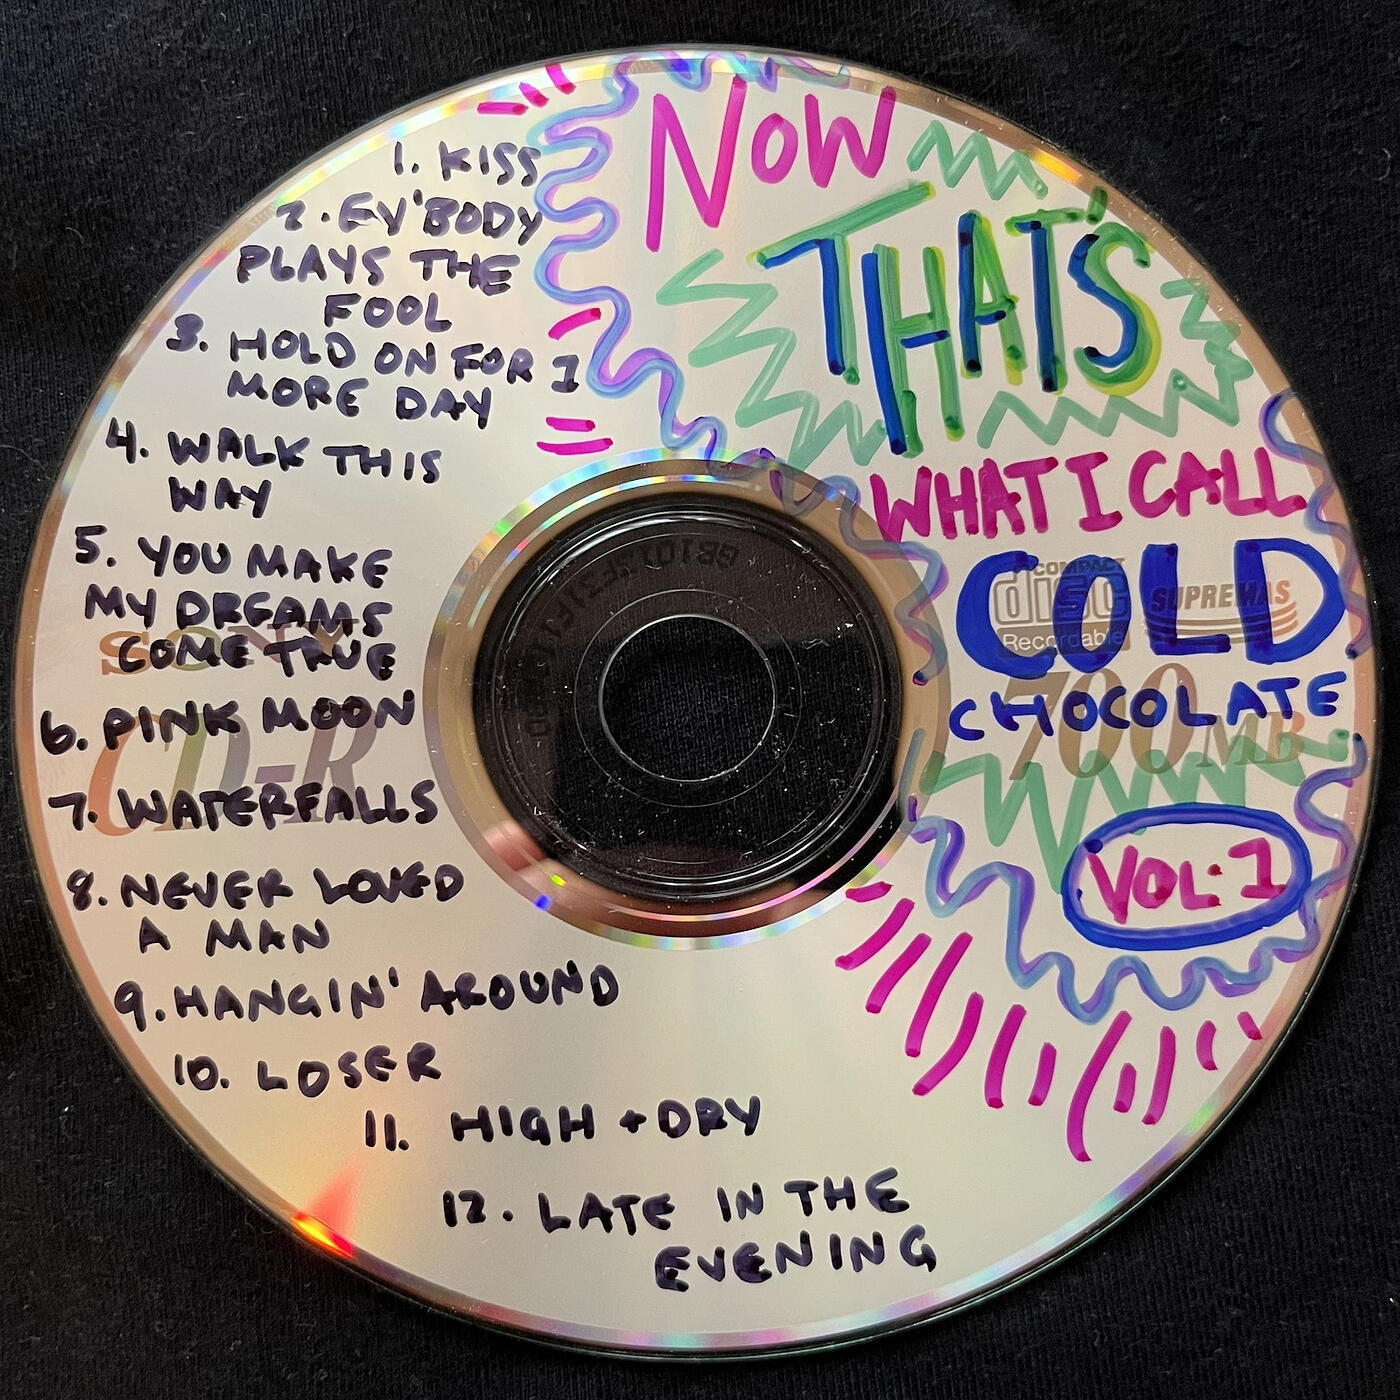 NOW
THAT'S
WHAT I CALL
COLD
CHOCOLATE
VOL. 1
1. KISS
2. EV'BODY
PLAYS THE
FOOL
3. HOLD ON FOR 1
MORE DAY
4. WALK THIS
WAY
5. YOU MAKE
MY DREAMS
COME TRUE
6. PINK MOON
7. WATERFALLS
8. NEVER LOVED
A MAN
9. HANGIN' AROUND
10. LOSER
11. HIGH + DRY
12. LATE IN THE
EVENING
SONY
CD-R
COMPACT
disc
Recordable
SUPREMAS
700MB